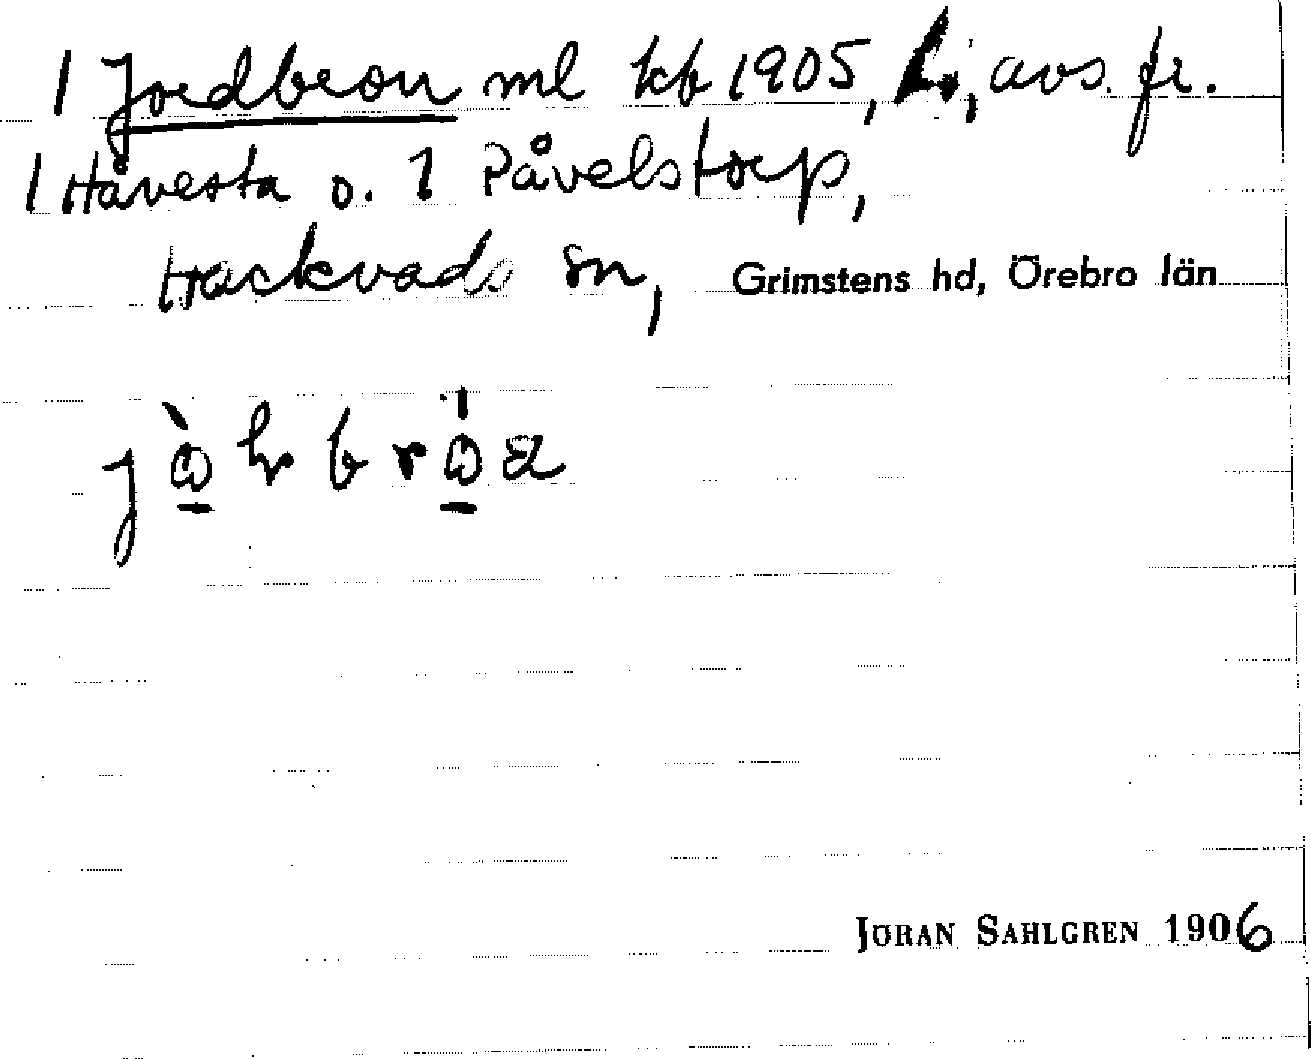 1 Jordbron ml kb 1905, L.; avs. fr.
1 Håvesta o. 1 Påvelstorp,
Hackvads sn, Grimstens hd, Örebro län
JÖRAN SAHLGREN 1906